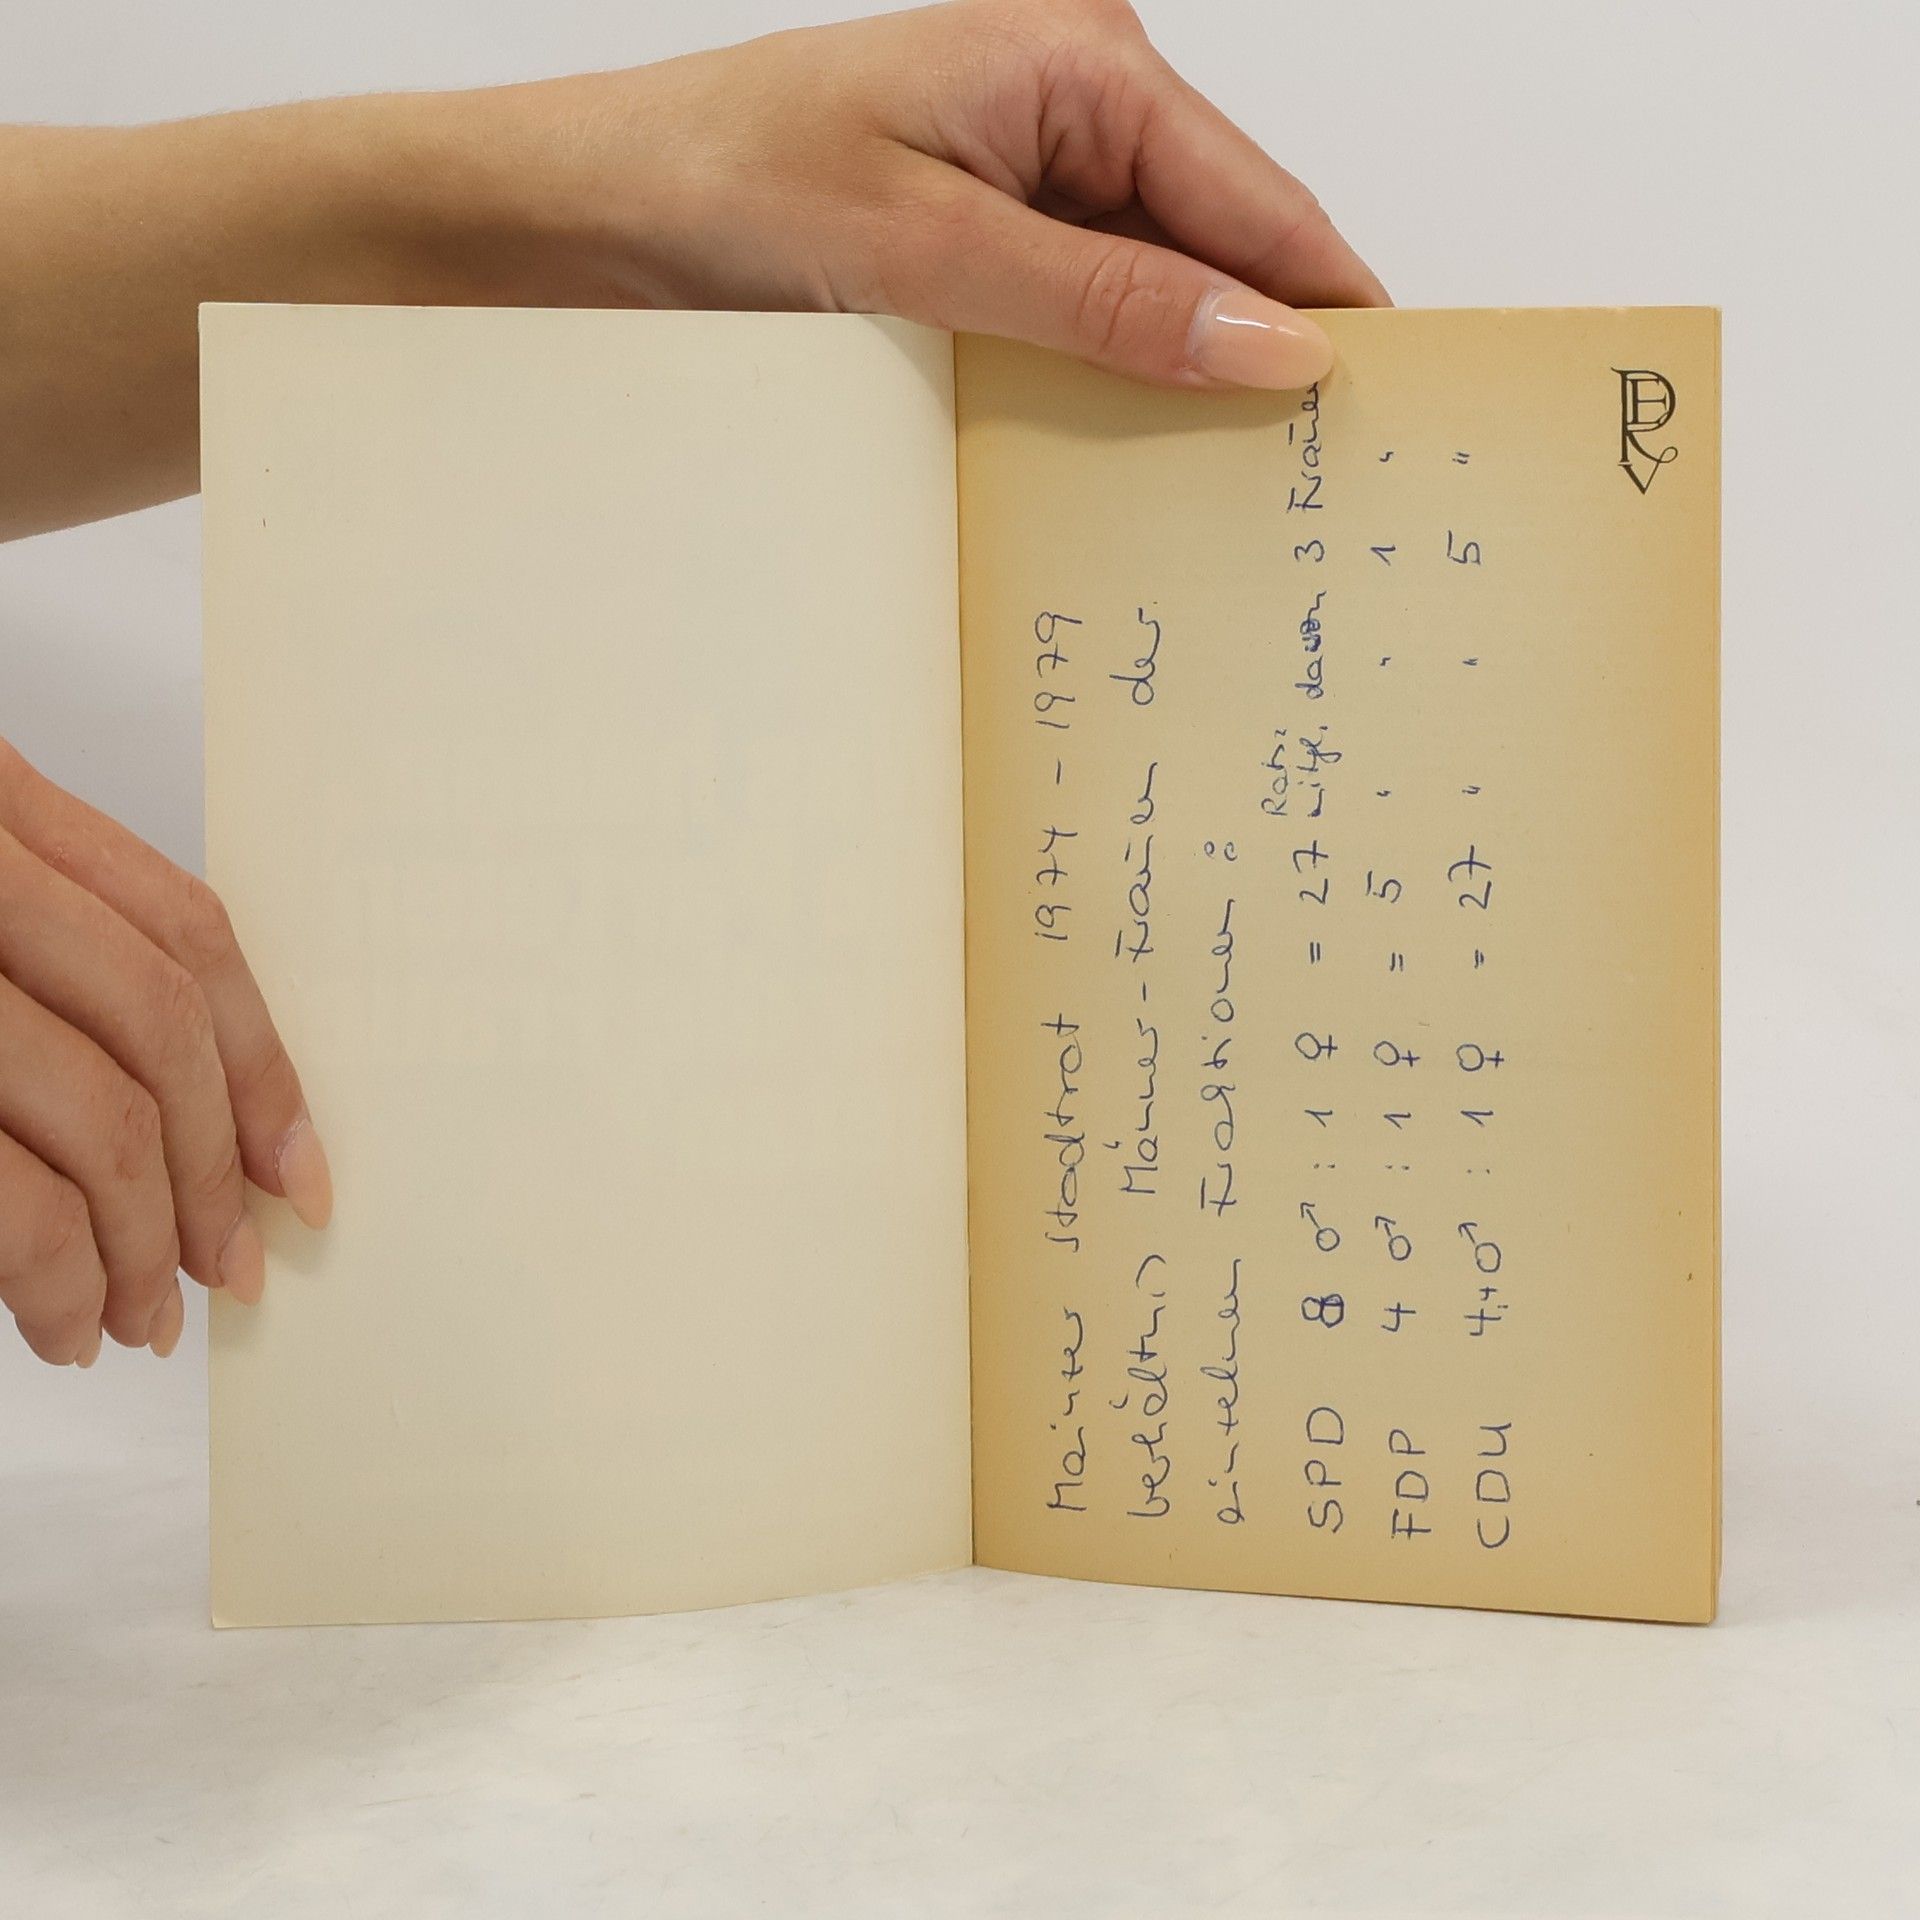 Mainzer Stadtrat 1974 - 1979
Verhältnis Männer-Frauen der
einzelnen Fraktionen:
Rats:
SPD 8 ♂ : 1 ♀ = 27 mitgl. davon 3 Frauen
FDP 4 ♂ : 1 ♀ = 5 " " 1 "
CDU 4,4 ♂ : 1 ♀ = 27 " " 5 "